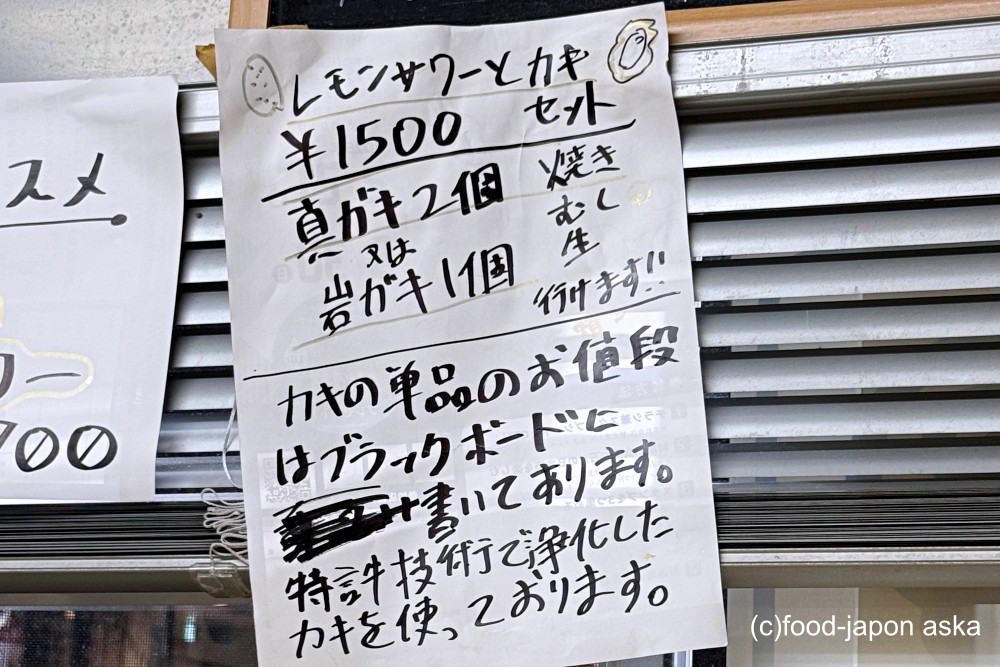 レモンサワーとカキ
セット
¥1500
真ガキ2個
又は
岩ガキ1個
焼き
むし
生
行けます!!
カキの単品のお値段
はブラックボードに
書いてあります。
特許技術で浄化した
カキを使っております。
スメ
ワー
700
(c)food-japon aska